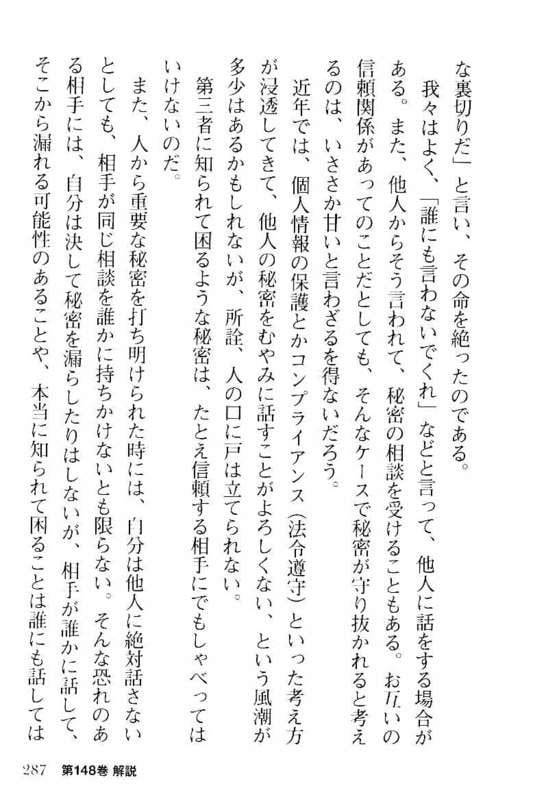 な裏切りだ」と言い、その命を絶ったのである。
我々はよく、「誰にも言わないでくれ」などと言って、他人に話をする場合が
ある。また、他人からそう言われて、秘密の相談を受けることもある。お互いの
信頼関係があってのことだとしても、そんなケースで秘密が守り抜かれると考え
るのは、いささか甘いと言わざるを得ないだろう。
近年では、個人情報の保護とかコンプライアンス（法令遵守）といった考え方
が浸透してきて、他人の秘密をむやみに話すことがよろしくない、という風潮が
多少はあるかもしれないが、所詮、人の口に戸は立てられない。
第三者に知られて困るような秘密は、たとえ信頼する相手にでもしゃべっては
いけないのだ。
また、人から重要な秘密を打ち明けられた時には、自分は他人に絶対話さない
としても、相手が同じ相談を誰かに持ちかけないとも限らない。そんな恐れのあ
る相手には、自分は決して秘密を漏らしたりはしないが、相手が誰かに話して、
そこから漏れる可能性のあることや、本当に知られて困ることは誰にも話しては
287 第148巻 解説